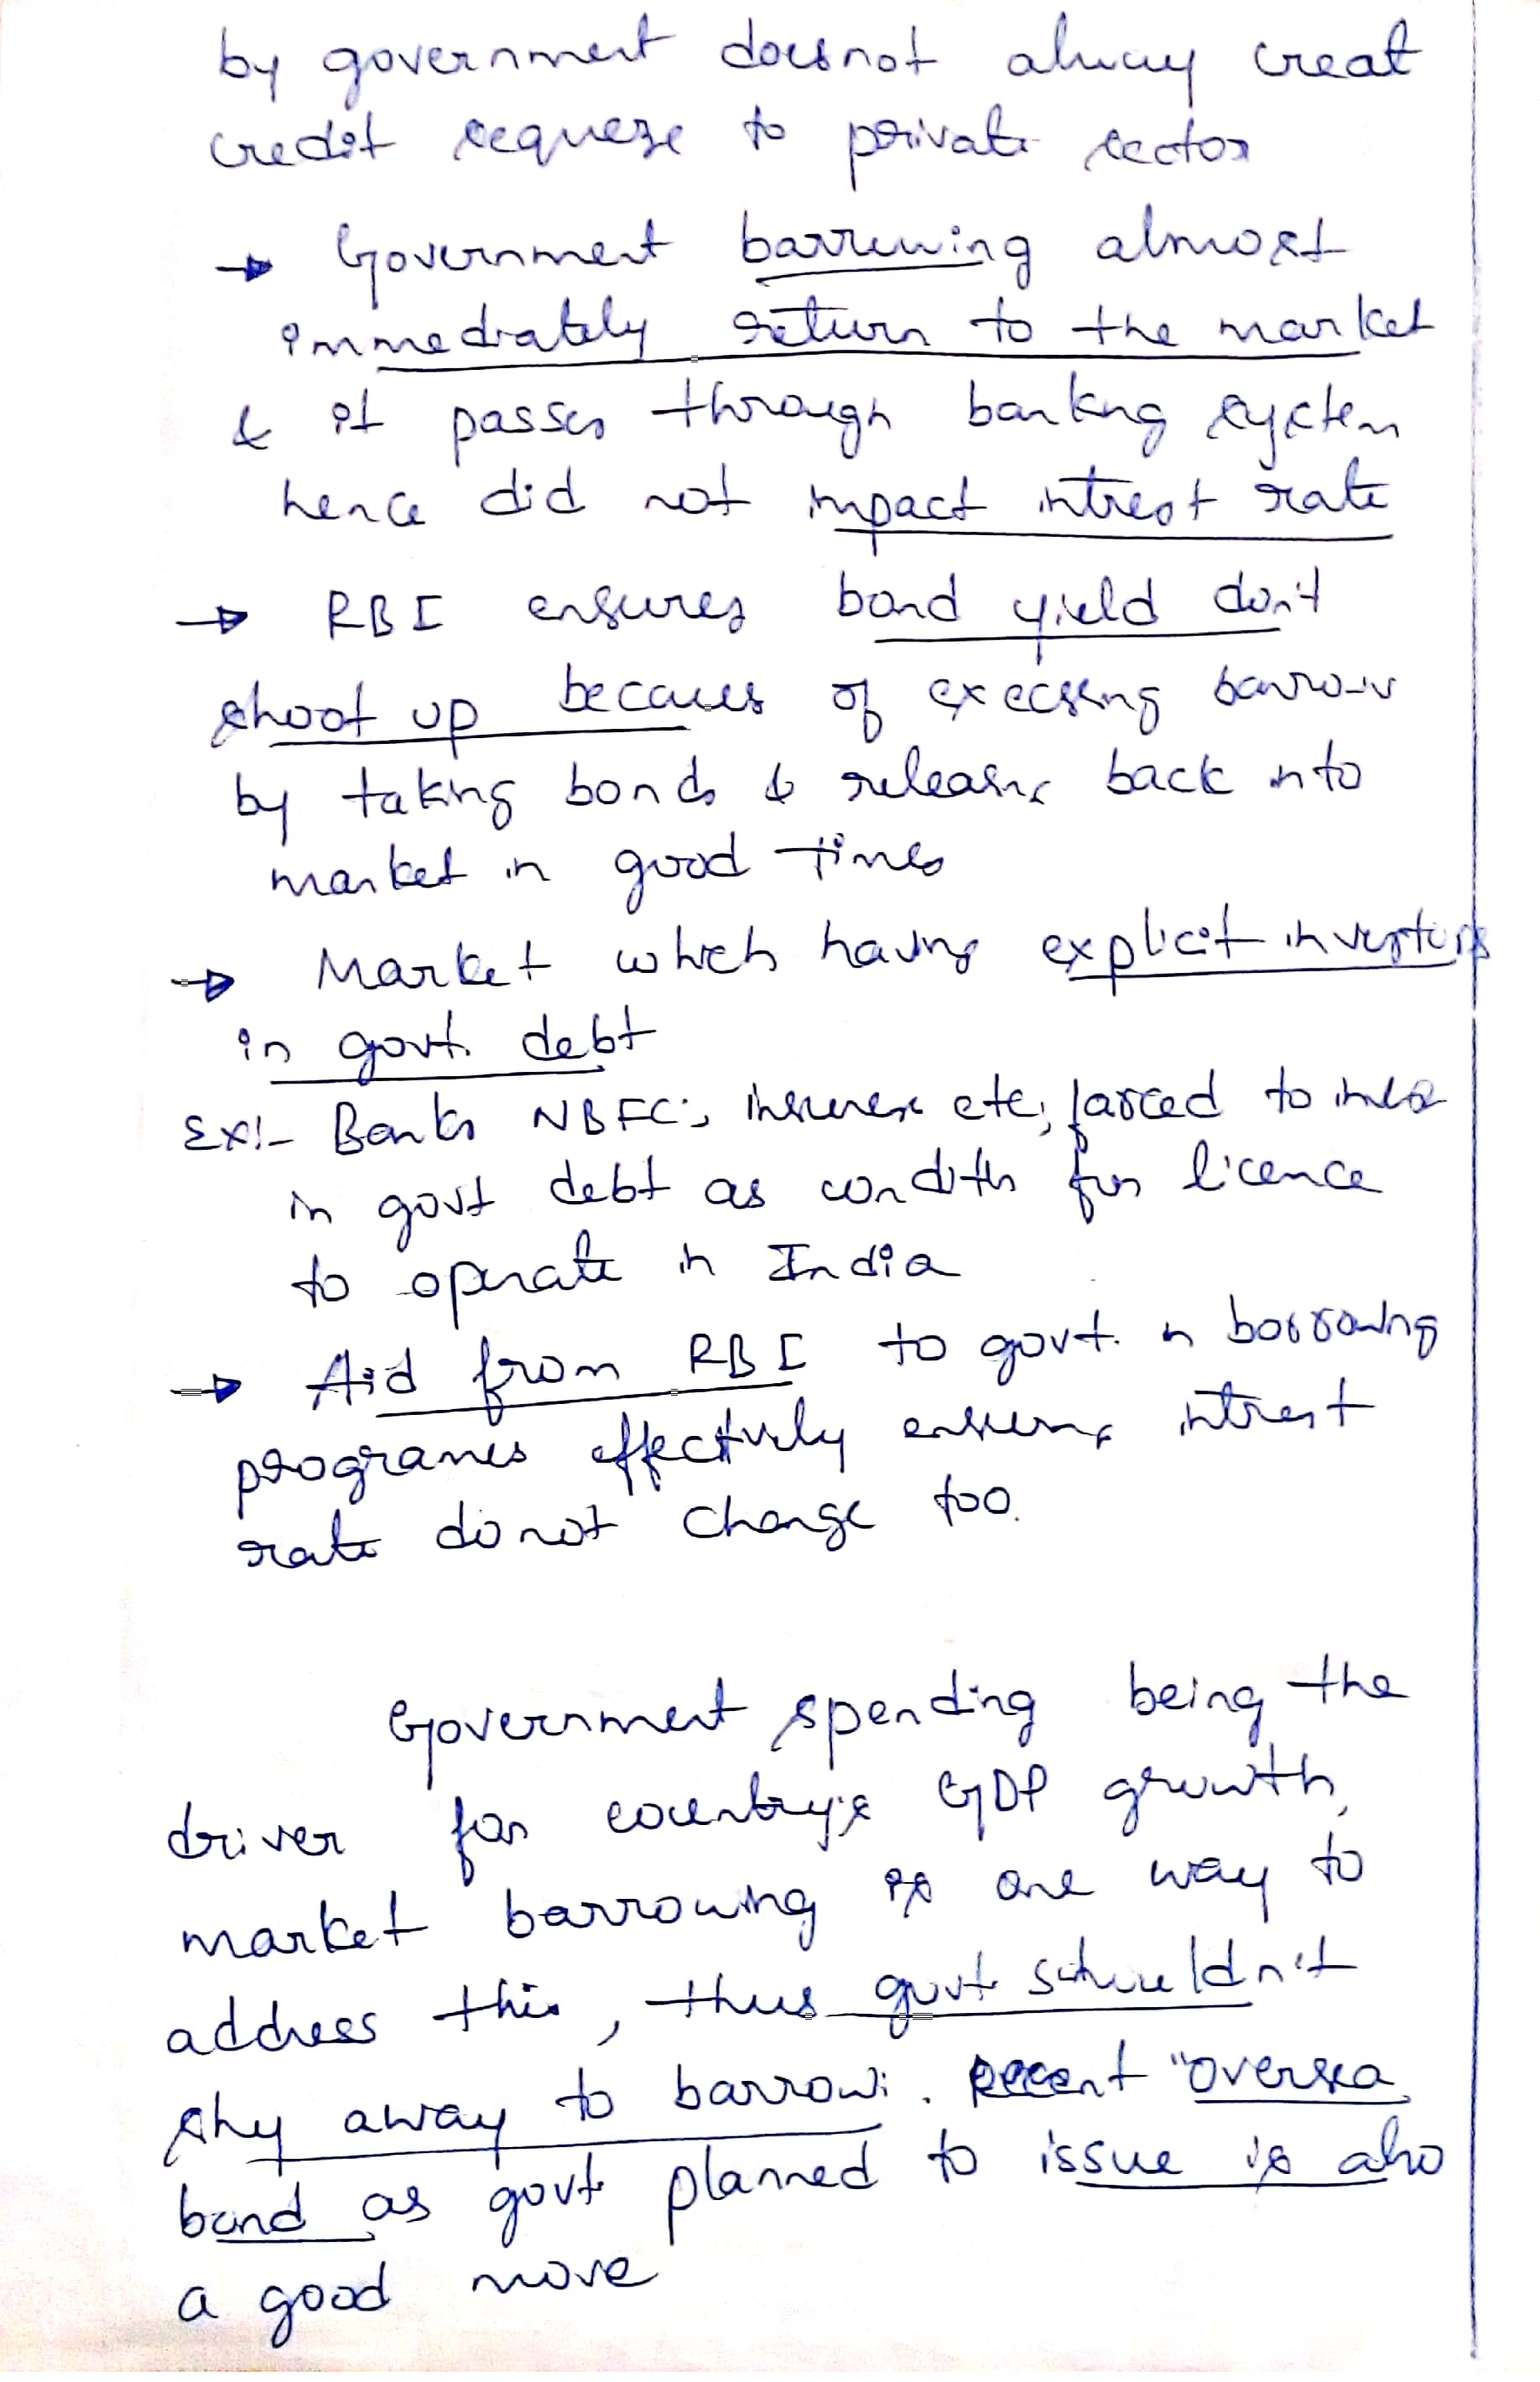 by government doesnot alway creat
credit sequeze to private sector
→ Government barrowing almost
immediately return to the market
& it passes through banking system
hence did not impact intrest rate
→ RBI ensures bond yield don't
shoot up becaues of execssing barrow
by taking bonds & releasing back into
market in good times
→ Market which having explicit investors
in govt. debt
Ex:- Banks NBFC's, insurers etc, forced to
in govt debt as condition for licence
to operate in India
→ Aid from RBI to govt. in borrowing
programes effectively ensuring intrest
rate do not change too.
Government spending being the
driver for country's GDP growth,
market barrowing is one way to
address this, thus govt shouldn't
shy away to barrow. Recent "oversea
bond as govt planned to issue is also
a good move